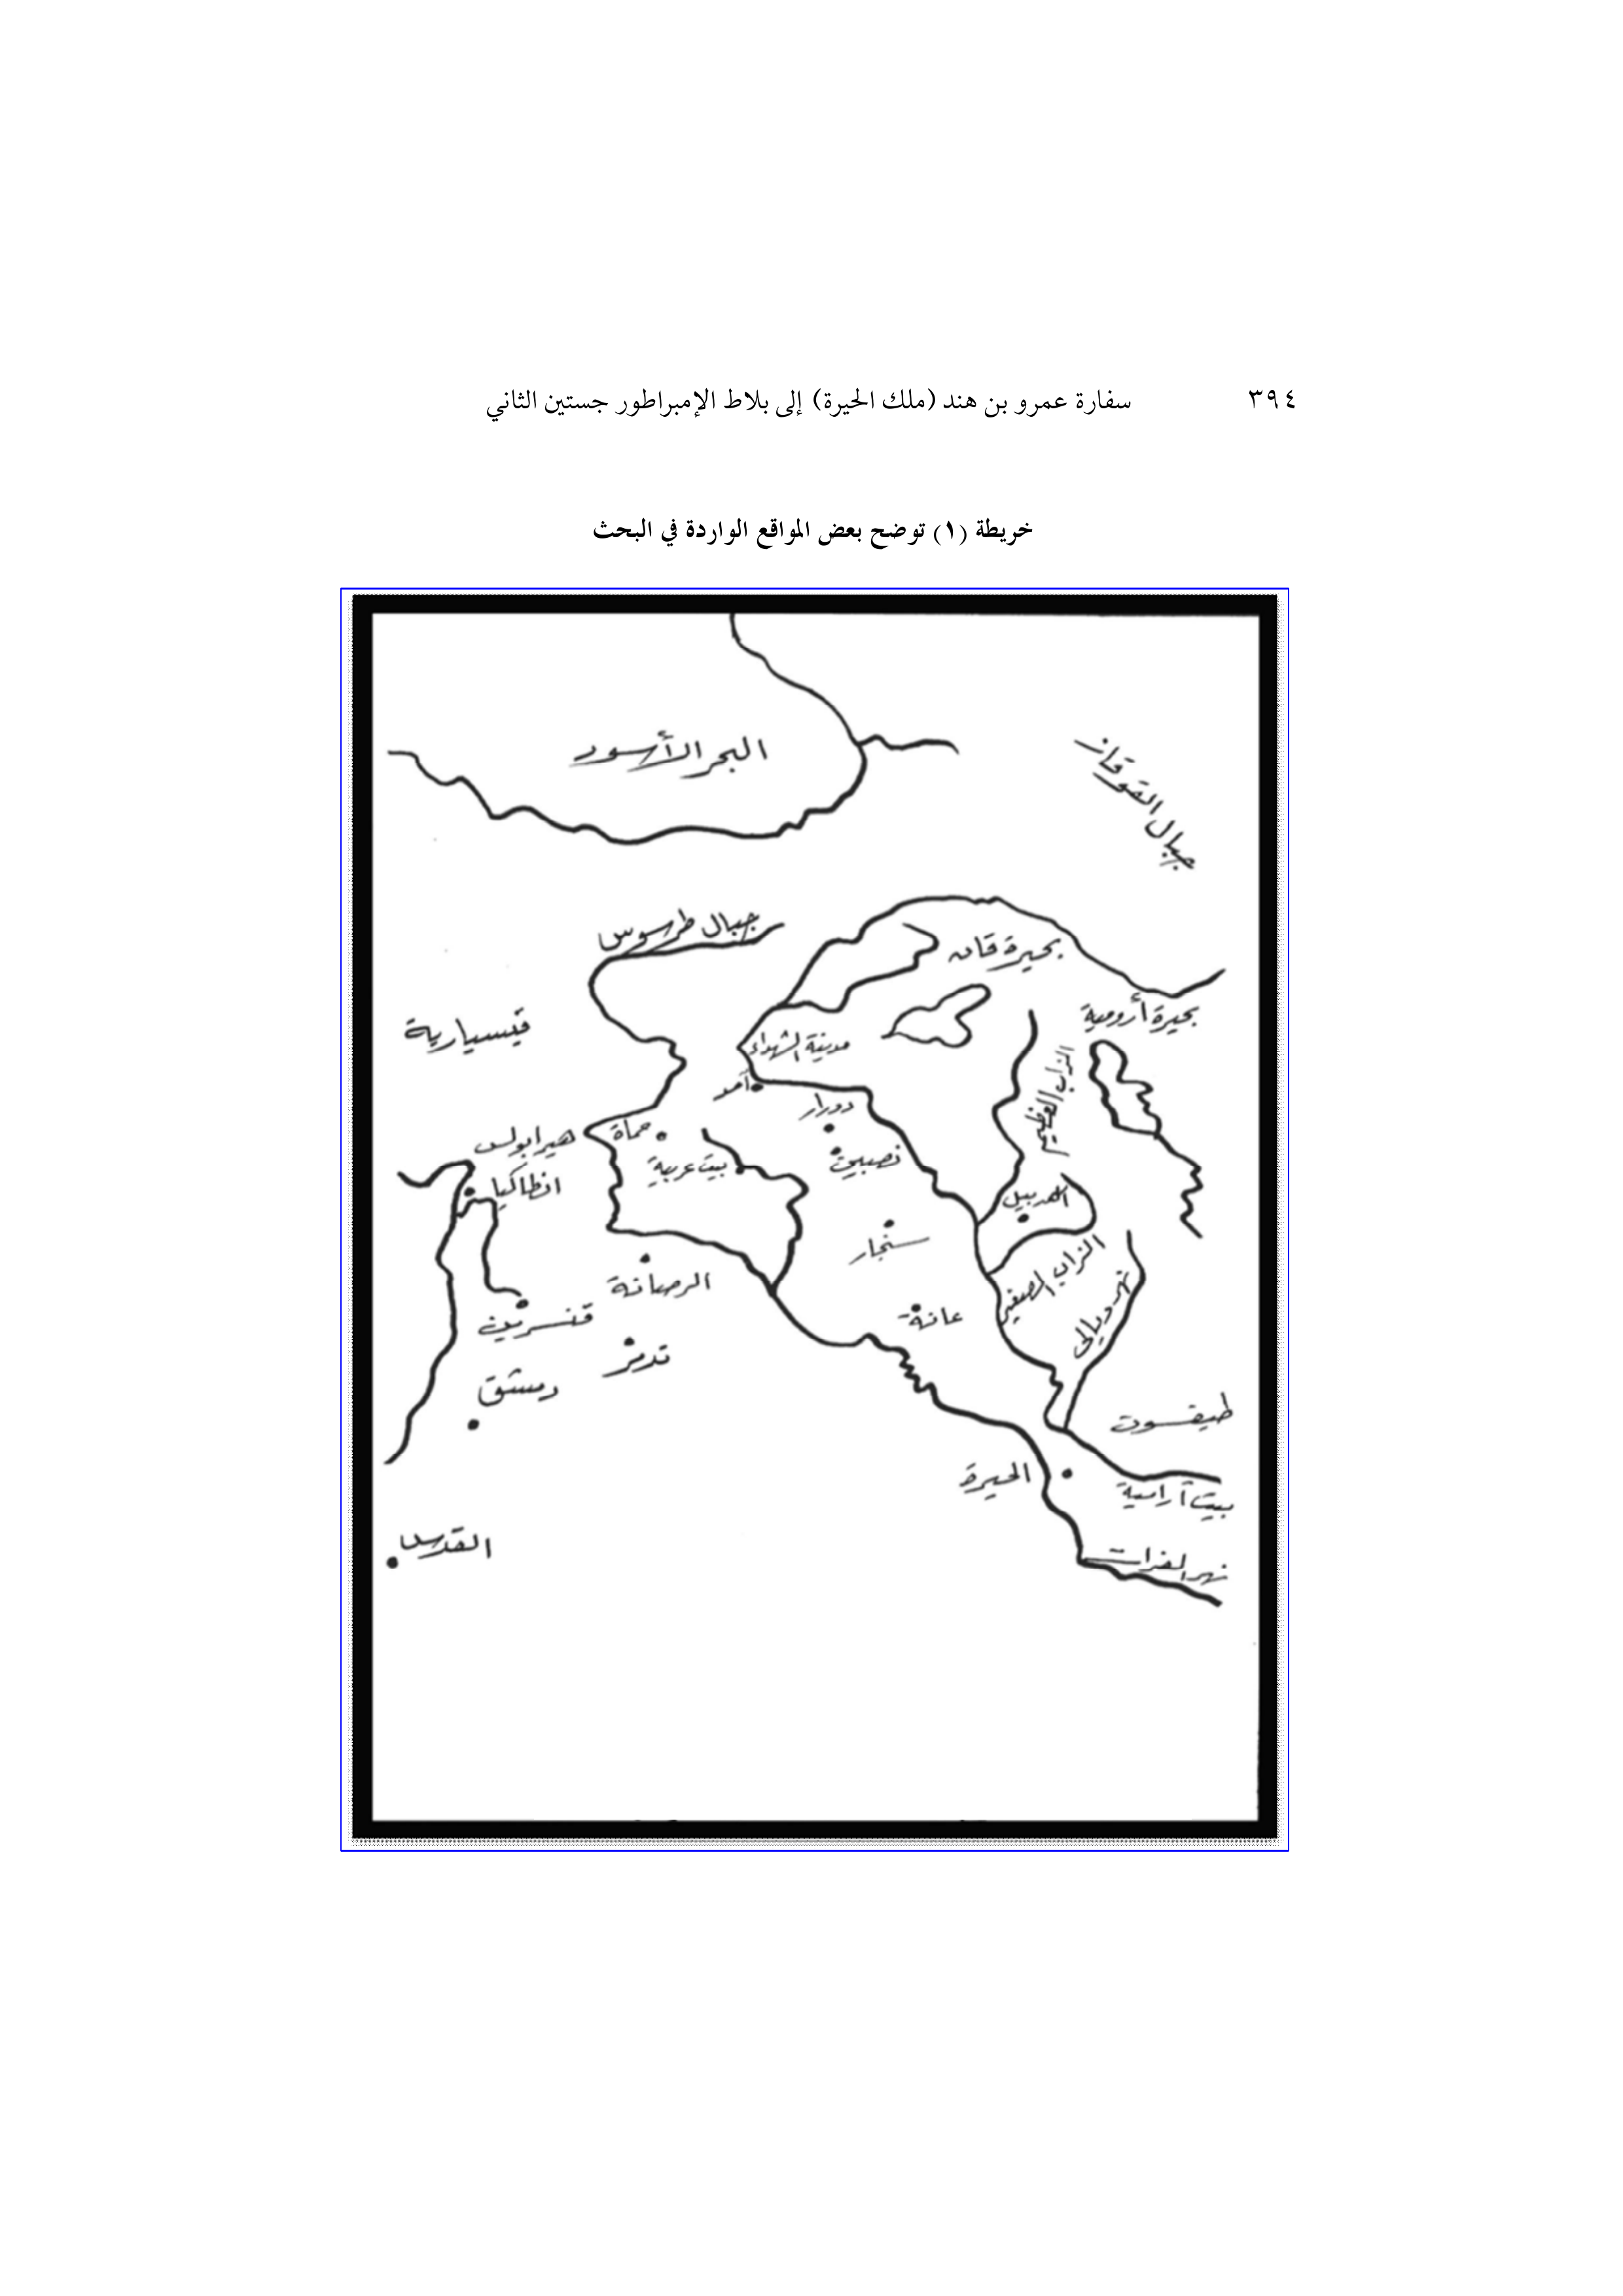 ٣٩٤
سفارة عمرو بن هند (ملك الحيرة) إلى بلاط الإمبراطور جستين الثاني
خريطة (١) توضح بعض المواقع الواردة في البحث
البحر الأسود
جبال القوقاز
جبال طرسوس
بحيرة فان
بحيرة أرومية
قيسيارية
مدينة الشهداء
الزاب العظيم
آمد
دورار
حماة
هيرابولس
بيت عربية
نصبين
انطاكيا
الهدبيل
سنجار
الزاب الصغير
الرصافة
نهر ديالى
عانة
قنسرين
تدمر
دمشق
طيفسون
الحيرة
بيت آرامية
القدس
نهر الفرات